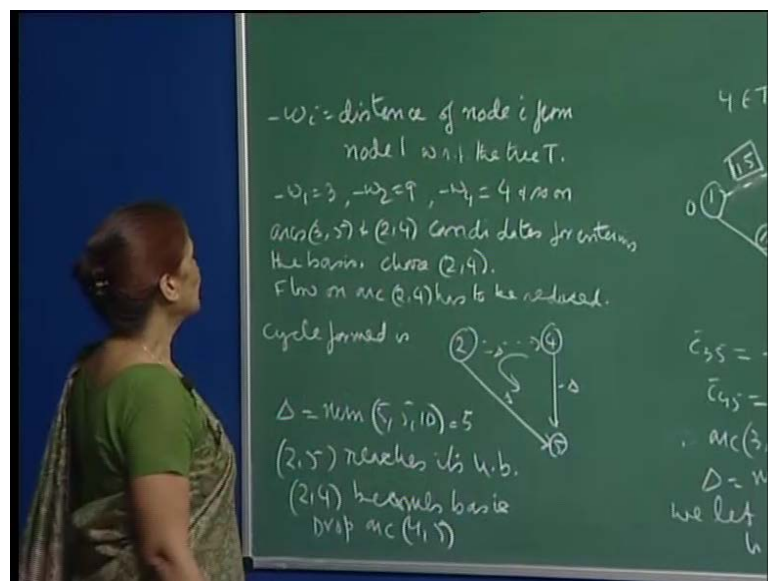 -wi = distance of node i from
node 1 w.r.t the tree T.
-w1 = 3, -w2 = 9, -w4 = 4 & so on
arcs (3,5) & (2,4) candidates for entering
the basis. choose (2,4).
Flow on arc (2,4) has to be reduced.
cycle formed is
2 -Δ 4
-Δ
5
Δ = min (5,5,10) = 5
(2,5) reaches its u.b.
(2,4) becomes basic
Drop arc (4,5)
4 ∈ T
15
0 1
c̄35 = -
c̄45 =
arc (3,
Δ = m
we let